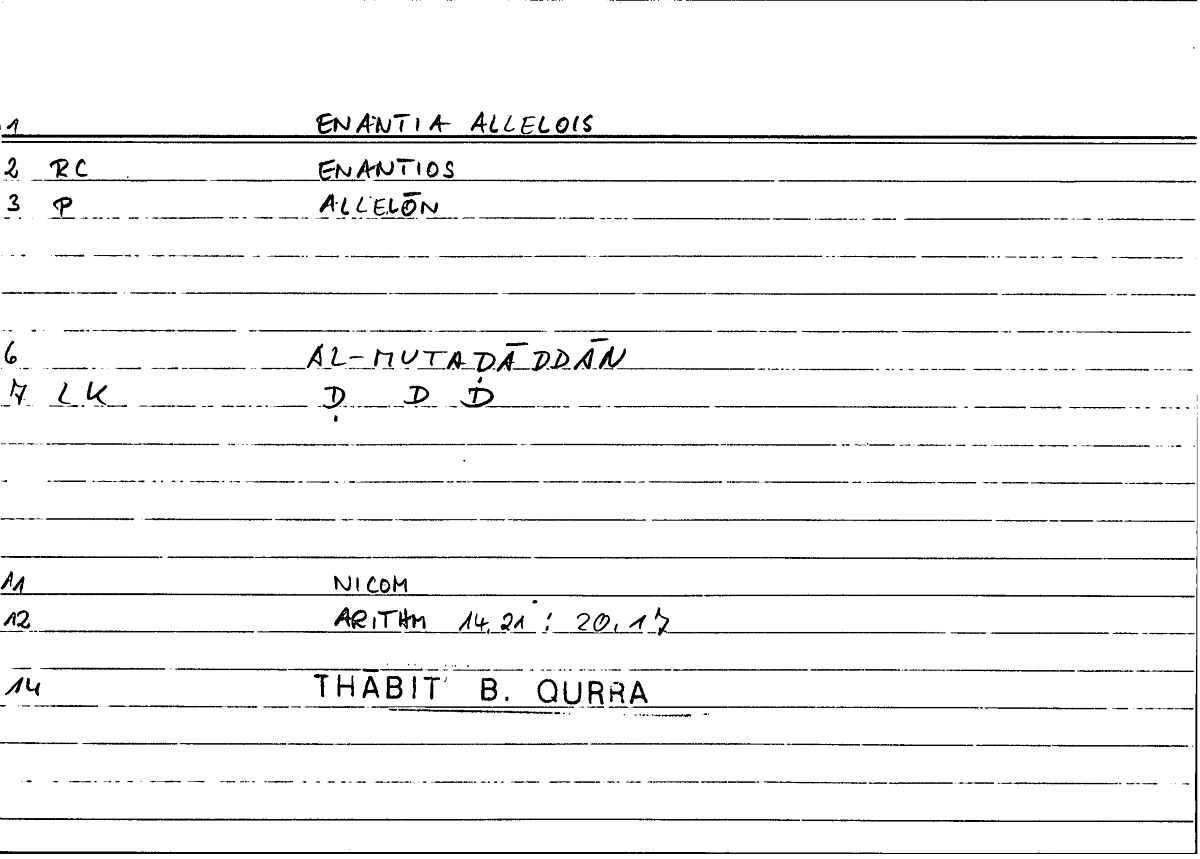 1 ENANTIA ALLELOIS
2 RC ENANTIOS
3 P ALLELŌN
6 AL-MUTAḌĀDDĀN
7 LK Ḍ D Ḋ
11 NICOM
12 ARITHM 14,21 : 20,17
14 THĀBIT B. QURRA